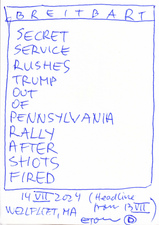 BREITBART
SECRET
SERVICE
RUSHES
TRUMP
OUT
OF
PENNSYLVANIA
RALLY
AFTER
SHOTS
FIRED
14 VII 2024 (Headline
WELLFLEET, MA from 13 VII)